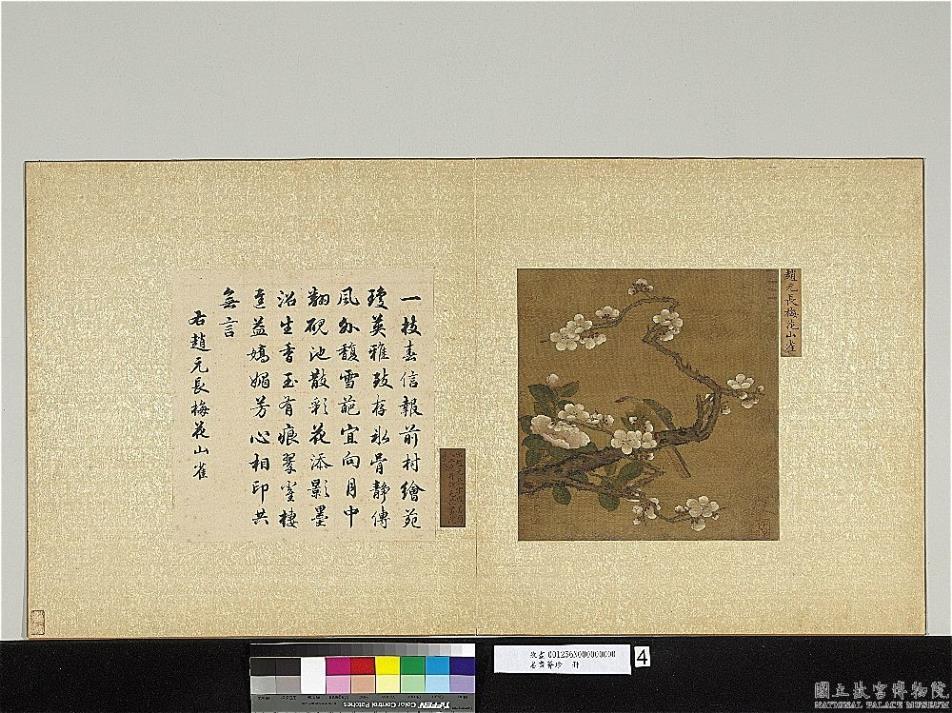 趙元長梅花山雀
一枝春信報前村繪苑
瓊英雅致存氷骨靜傳
風外馥雪葩宜向月中
翻硯池散彩花添影墨
沼生香玉有痕翠雀棲
遲益嬌媚芳心相印共
無言
右趙元長梅花山雀
4
TIFFEN Color Control Patches
國立故宮博物院
NATIONAL PALACE MUSEUM